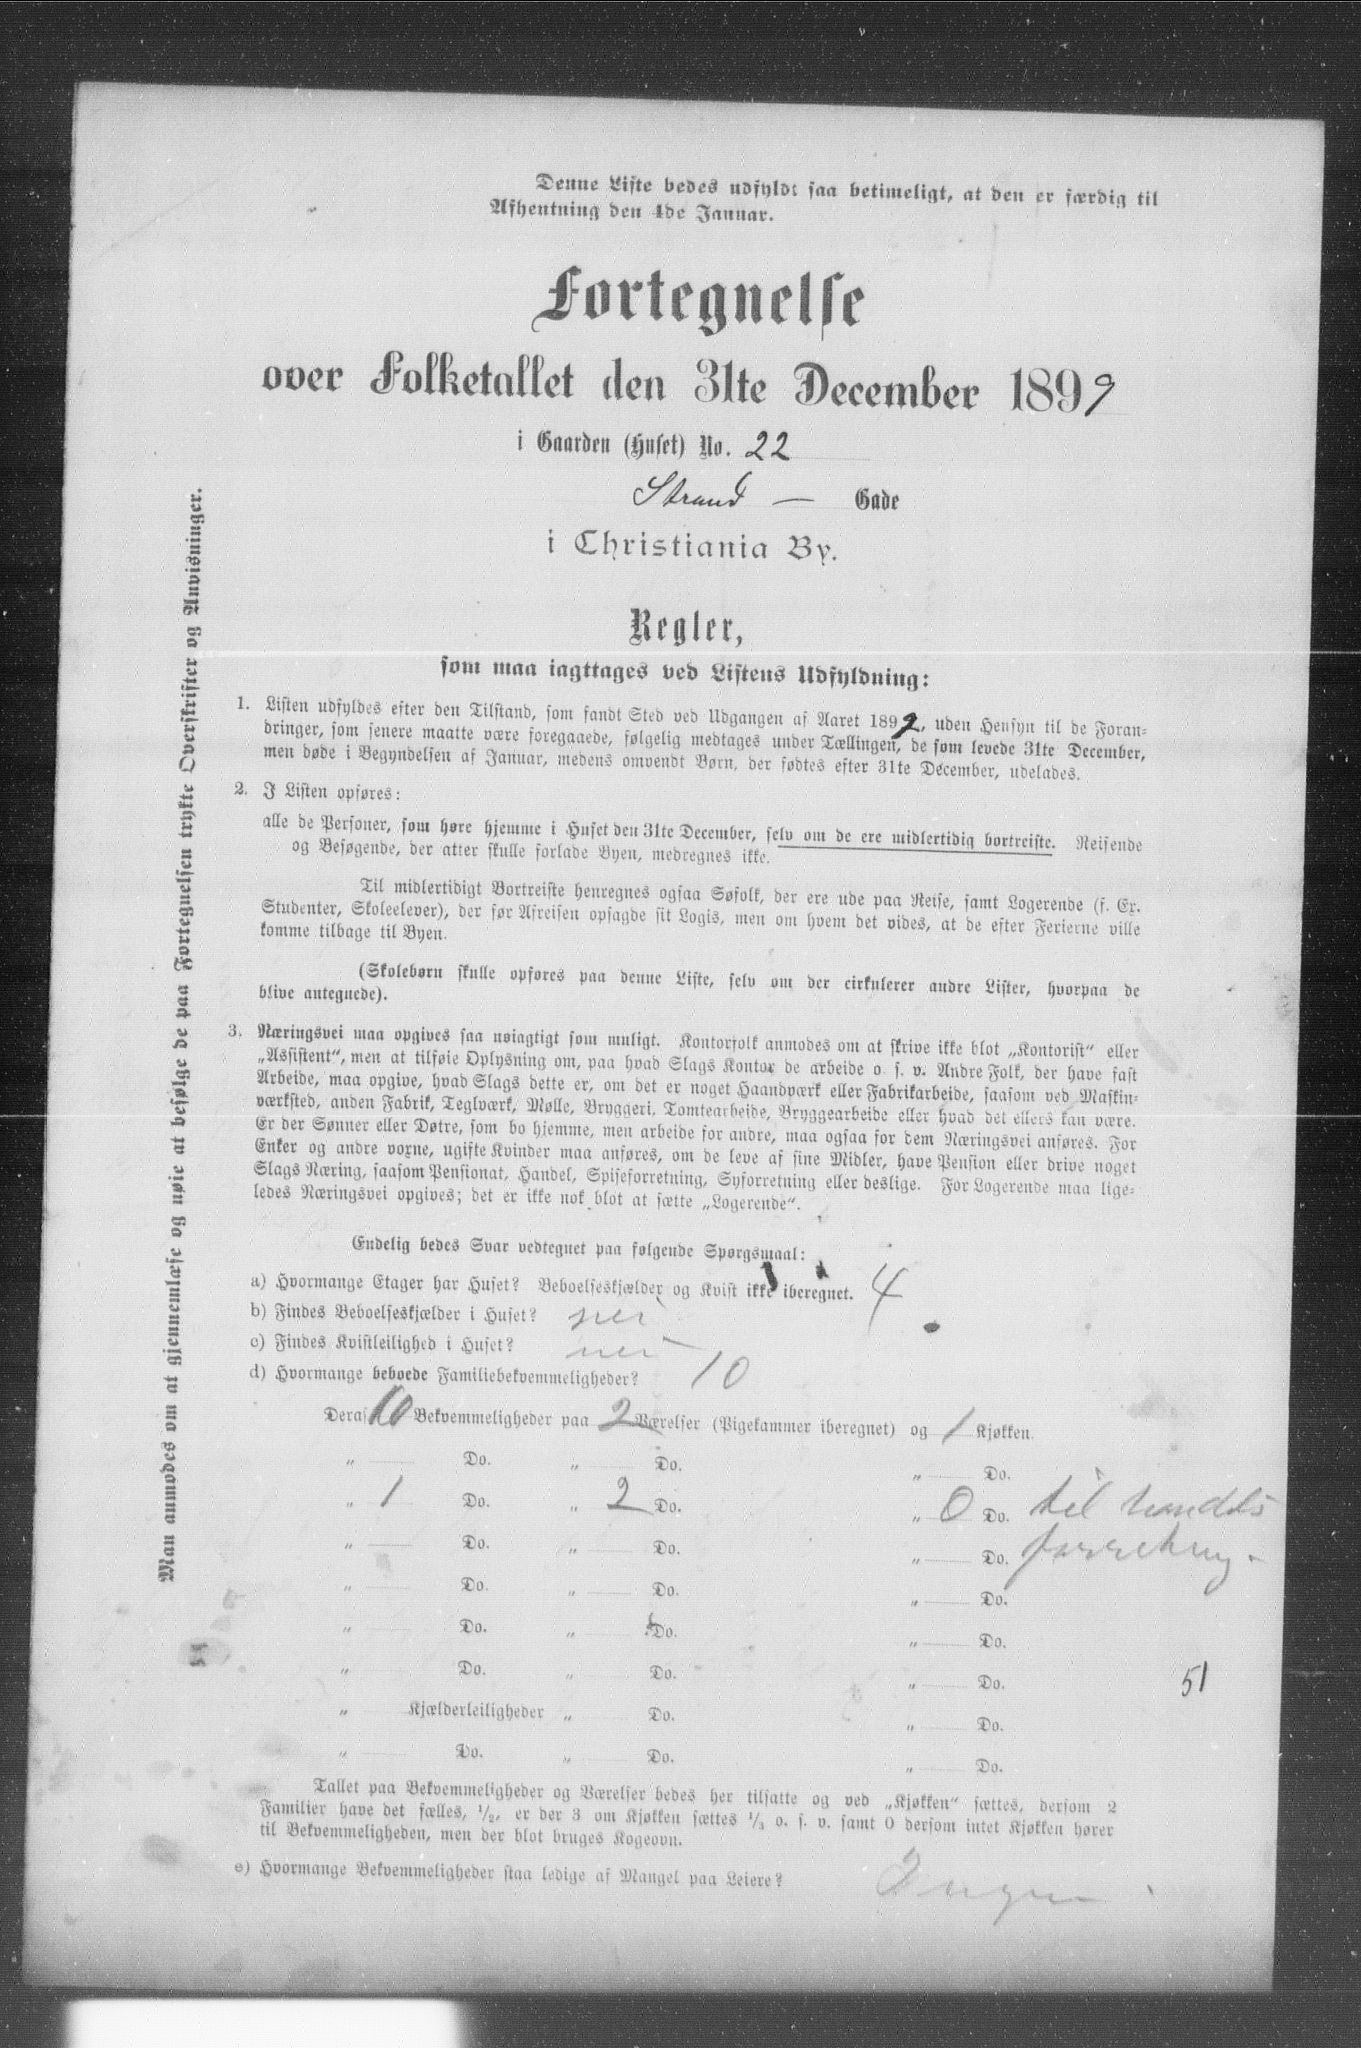 Denne Liste bedes udfyldt saa betimeligt, at den er færdig til
Afhentning den 4de Januar.
Fortegnelse
over Folketallet den 31te December 1899
i Gaarden (Huset) No. 22
Strand — Gade
i Christiania By.
Regler,
som maa iagttages ved Listens Udfyldning:
1. Listen udfyldes efter den Tilstand, som fandt Sted ved Udgangen af Aaret 1899, uden Hensyn til de Foran-
dringer, som senere maatte være foregaaede, følgelig medtages under Tællingen, de som levede 31te December,
men døde i Begyndelsen af Januar, medens omvendt Børn, der fødtes efter 31te December, udelades.
2. I Listen opføres:
alle de Personer, som høre hjemme i Huset den 31te December, selv om de ere midlertidig bortreiste. Reisende
og Besøgende, der atter skulle forlade Byen, medregnes ikke.
Til midlertidigt Bortreiste henregnes ogsaa Søfolk, der ere ude paa Reise, samt Logerende (f. Ex.
Studenter, Skoleelever), der før Afreisen opsagde sit Logis, men om hvem det vides, at de efter Ferierne ville
komme tilbage til Byen.
(Skolebørn skulle opføres paa denne Liste, selv om der cirkulerer andre Lister, hvorpaa de
blive antegnede).
3. Næringsvei maa opgives saa nøiagtigt som muligt. Kontorfolk anmodes om at skrive ikke blot „Kontorist“ eller
„Assistent“, men at tilføie Oplysning om, paa hvad Slags Kontor de arbeide o. s. v. Andre Folk, der have fast
Arbeide, maa opgive, hvad Slags dette er, om det er noget Haandværk eller Fabrikarbeide, saasom ved Maskin-
værksted, anden Fabrik, Teglværk, Mølle, Bryggeri, Tomtearbeide, Bryggearbeide eller hvad det ellers kan være.
Er der Sønner eller Døtre, som bo hjemme, men arbeide for andre, maa ogsaa for dem Næringsvei anføres. For
Enker og andre voxne, ugifte Kvinder maa anføres, om de leve af sine Midler, have Pension eller drive noget
Slags Næring, saasom Pensionat, Handel, Spiseforretning, Syforretning eller deslige. For Logerende maa lige-
ledes Næringsvei opgives; det er ikke nok blot at sætte „Logerende“.
Endelig bedes Svar vedtegnet paa følgende Spørgsmaal:
a) Hvormange Etager har Huset? Beboelseskjælder og Kvist ikke iberegnet. 4
b) Findes Beboelseskjælder i Huset? nei
c) Findes Kvistleilighed i Huset? nei
d) Hvormange beboede Familiebekvemmeligheder? 10
Deraf 10 Bekvemmeligheder paa 2 Værelser (Pigekammer iberegnet) og 1 Kjøkken.
„ Do. „ Do. „ Do.
„ 1 Do. „ 2 Do. „ 0 Do. til handels
„ Do. „ Do. „ Do. forretning.
„ Do. „ Do. „ Do.
„ Do. „ Do. „ Do.
„ Do. „ Do. „ Do. 51
„ Kjælderleiligheder „ Do. „ Do.
„ Do. „ Do. „ Do.
Tallet paa Bekvemmeligheder og Værelser bedes her tilsatte og ved „Kjøkken“ sættes, dersom 2
Familier have det fælles, 1/2, er der 3 om Kjøkken sættes 1/3 o. s. v. samt 0 dersom intet Kjøkken hører
til Bekvemmeligheden, men der blot bruges Kogeovn.
e) Hvormange Bekvemmeligheder staa ledige af Mangel paa Leiere? Ingen
Man anmodes om at gjennemlæse og nøie at besølge de paa Fortegnelsen trykte Overskrifter og Anvisninger.